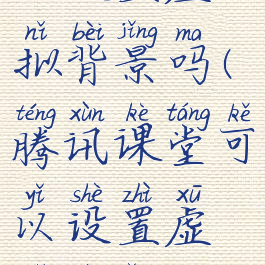 nǐ bèi jǐng ma
拟背景吗(
téng xùn kè táng kě
腾讯课堂可
yǐ shè zhì xū
以设置虚